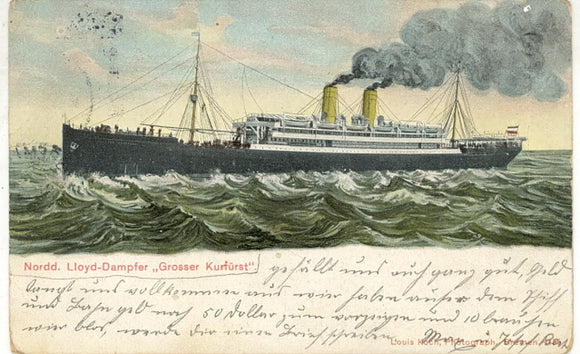 Nordd. Lloyd-Dampfer „Grosser Kurfürst"
gefällt uns auch ganz gut, Geld
langt uns vollkommen aus wir haben außer dem Schiff
und Bahn geld noch 50 Dollar zum vorzeigen und 10 brauchen
wir blos, werde dir einen Brief schreiben.
Louis Koch, Photograph, Bremen.